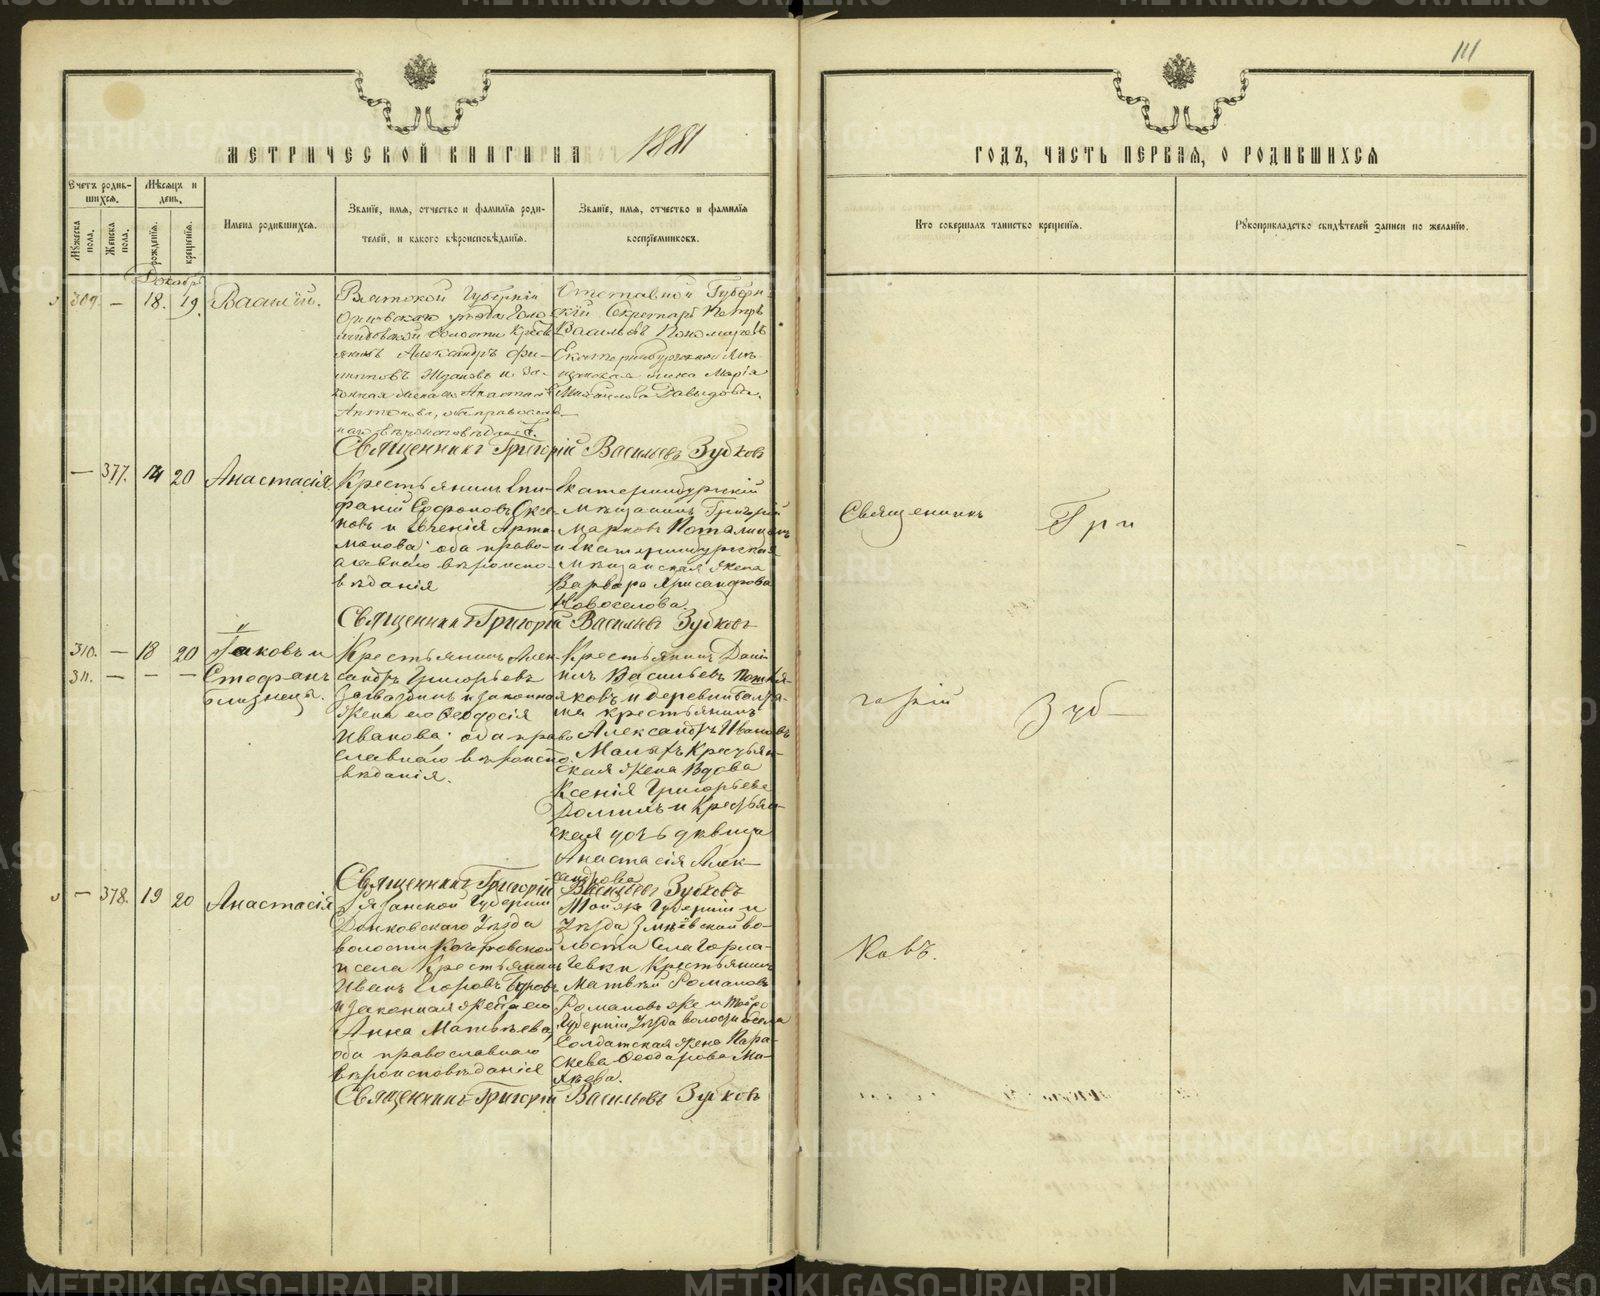 111
МЕТРИЧЕСКОЙ КНИГИ НА 1881
ГОДЪ, ЧАСТЬ ПЕРВАЯ, О РОДИВШИХСЯ
Счетъ родив-
шихся.
Мѣсяцъ и
день.
Мужеска
пола.
Женска
пола.
рожденія.
крещенія.
Имена родившихся.
Званіе, имя, отчество и фамилія роди-
телей, и какого вѣроисповѣданія.
Званіе, имя, отчество и фамилія
воспріемниковъ.
Кто совершалъ таинство крещенія.
Рукоприкладство свидѣтелей записи по желанію.
Декабрь
309. — 18. 19. Василій.
Вятской Губерніи
Орловскаго уѣзда
волости Кресть-
янинъ Александръ Фи-
липповъ Ждановъ и за-
конная жена его Анастасія
Антонова, оба православ-
наго вѣроисповѣданія.
Отставной Губерн-
скій Секретарь Петръ
Васильевъ Пономаревъ
Екатеринбургская Мѣ-
щанская жена Марія
Михайлова Давыдова.
Священникъ Григорій Васильевъ Зубковъ
— 377. 14 20 Анастасія
Крестьянинъ Епи-
фаній Софроновъ
и Евгенія Арта-
монова; оба право-
славнаго вѣроиспо-
вѣданія
Екатеринбургскій
Мѣщанинъ Григорій
Марковъ
и Екатеринбургская
Мѣщанская жена
Варвара
Новоселова.
Священникъ Григорій Васильевъ Зубковъ
310. — 18 20 Іаковъ и
311. — — — Стефанъ
близнецы.
Крестьянинъ Алек-
сандръ Григорьевъ
и законная
жена его Ѳеодосія
Иванова; оба право
славнаго вѣроиспо
вѣданія.
Крестьянинъ Дані
илъ Васильевъ
и деревни
крестьянинъ
Александръ Ивановъ
Крестьян-
ская жена Вдова
Ксенія Григорьева
и Крестьян-
ская дочь дѣвица
Анастасія Алек-
сандрова
Священникъ Григорій Васильевъ Зубковъ
— 378. 19 20 Анастасія
Рязанской Губерніи
Донковскаго Уѣзда
волости
и села Крестьянинъ
Иванъ Егоровъ
и законная жена его
Анна Матвѣева,
оба православнаго
вѣроисповѣданія
Губерніи и
Уѣзда во-
лости села
Крестьянинъ
Матвѣй Романовъ
Романовъ же и
Губерніи Уѣзда волости
Солдатская жена Пара-
скева Ѳеодорова

Священникъ Григорій Васильевъ Зубковъ
Священникъ Гри
горій Зуб—
ковъ.
METRIKI.GASO-URAL.RU